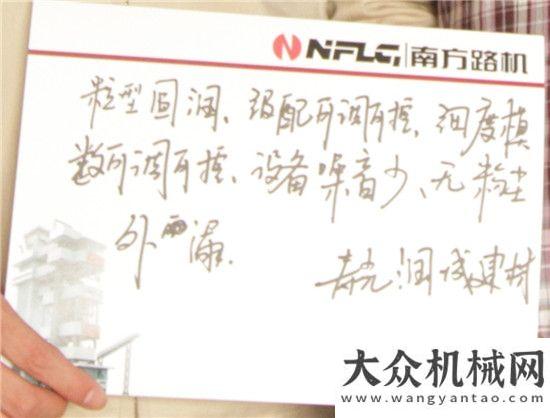 NFLG 南方路机
粒型圆润、级配可调可控、细度模
数可调可控、设备噪音少、无粉尘
外漏.
寿光润诚建材
大众机械网
www.wangyantao.com